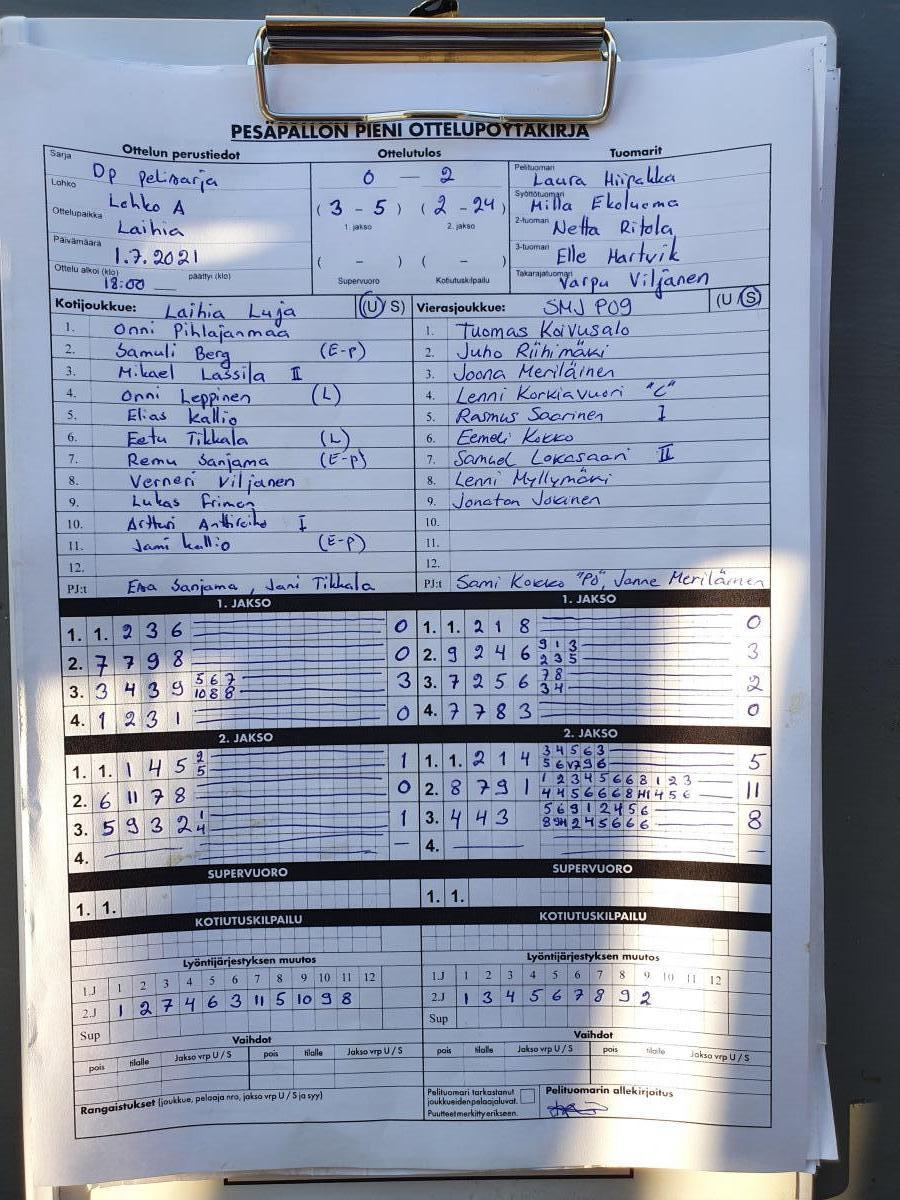 PESÄPALLON PIENI OTTELUPÖYTÄKIRJA
Ottelun perustiedot Ottelutulos Tuomarit
Sarja Dp pelisarja 0 — 2 Pelituomari Laura Hiipakka
Lohko Lohko A (3 - 5) (2 - 24) Syöttötuomari Milla Ekoluoma
1. jakso 2. jakso
Ottelupaikka Laihia 2-tuomari Netta Ritola
Päivämäärä 1.7.2021 ( - ) ( - ) 3-tuomari Elle Hartvik
Ottelu alkoi (klo) 18:00 päättyi (klo) Supervuoro Kotiutuskilpailu Takarajatuomari Varpu Viljanen
Kotijoukkue: Laihia Luja (U/S) Vierasjoukkue: SMJ P09 (U/S)
1. Onni Pihlajanmaa 1. Tuomas Koivusalo
2. Samuli Berg (E-p) 2. Juho Riihimäki
3. Mikael Lassila II 3. Joona Meriläinen
4. Onni Leppinen (L) 4. Lenni Korkiavuori "C"
5. Elias Kallio 5. Rasmus Saarinen I
6. Eetu Tikkala (L) 6. Eemeli Kokko
7. Remu Sanjama (E-p) 7. Samuel Lokasaari II
8. Verneri Viljanen 8. Lenni Myllymäki
9. Lukas Friman 9. Jonatan Jokinen
10. Artturi I 10.
11. Jami Kallio (E-p) 11.
12. 12.
PJ:t Esa Sanjama, Jani Tikkala PJ:t Sami Kokko "PÖ", Janne Meriläinen
1. JAKSO 1. JAKSO
1. 1. 2 3 6 0 1. 1. 2 1 8 0
2. 7 7 9 8 0 2. 9 2 4 6 9 1 3 3
2 3 5
3. 3 4 3 9 5 6 7 3 3. 7 2 5 6 7 8 2
10 8 8 3 4
4. 1 2 3 1 0 4. 7 7 8 3 0
2. JAKSO 2. JAKSO
1. 1. 1 4 5 2 1 1. 1. 2 1 4 3 4 5 6 3 5
5 5 6 V7 9 6
2. 6 11 7 8 0 2. 8 7 9 1 1 2 3 4 5 6 6 8 1 2 3 11
4 4 5 6 6 6 8 H1 4 5 6
3. 5 9 3 2 1 1 3. 4 4 3 5 6 9 1 2 4 5 6 8
4 8 9H 2 4 5 6 6 6
4. — — 4. — —
SUPERVUORO SUPERVUORO
1. 1. 1. 1.
KOTIUTUSKILPAILU KOTIUTUSKILPAILU
Lyöntijärjestyksen muutos Lyöntijärjestyksen muutos
1.J 1 2 3 4 5 6 7 8 9 10 11 12 1.J 1 2 3 4 5 6 7 8 9 10 11 12
2.J 1 2 7 4 6 3 11 5 10 9 8 2.J 1 3 4 5 6 7 8 9 2
Sup Sup
Vaihdot Vaihdot
pois tilalle Jakso vrp U / S pois tilalle Jakso vrp U / S pois tilalle Jakso vrp U / S pois tilalle Jakso vrp U / S
Rangaistukset (joukkue, pelaaja nro, jakso vrp U / S ja syy) Pelituomari tarkastanut Pelituomarin allekirjoitus
joukkueiden pelaajaluvat.
Puutteet merkitty erikseen.